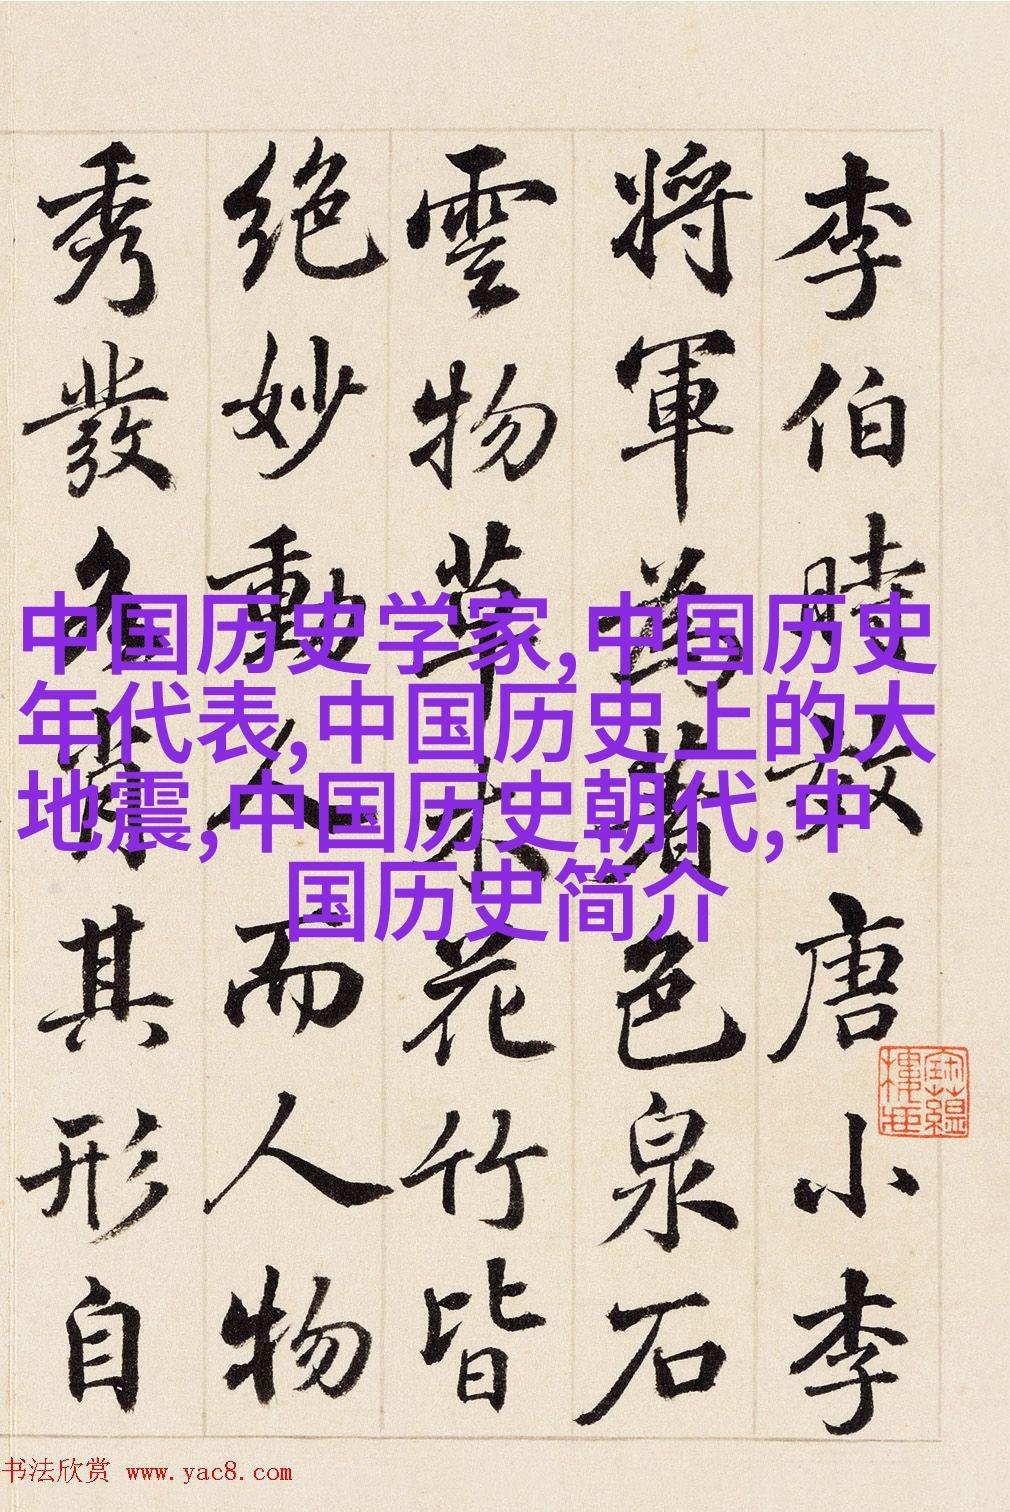 李伯時效唐小李
將軍為著色泉石
雲物草木花竹皆
絕妙動人而人物
秀發各肖其形自
中国历史学家,中国历史
年代表,中国历史上的大
地震,中国历史朝代,中
国历史简介
书法欣赏 www.yac8.com